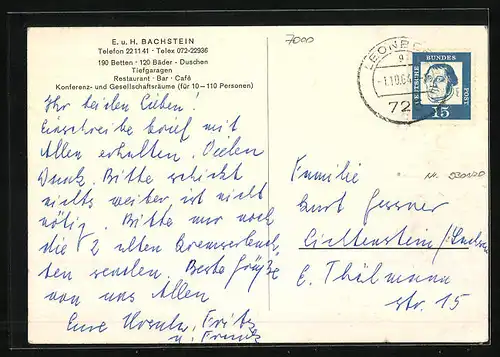 E. u. H. BACHSTEIN
Telefon 22 11 41 · Telex 072-22936
190 Betten · 120 Bäder - Duschen
Tiefgaragen
Restaurant · Bar · Café
Konferenz- und Gesellschaftsräume (für 10–110 Personen)
Ihr beiden Lieben!
Einschreibebrief mit
Allem erhalten. Vielen
Dank. Bitte schickt
nichts weiter, ist nicht
nötig. Bitte nur noch
die 2 alten
senden. Beste Grüße
von uns Allen
Eure Ursula, Fritz
u.
7000
LEONBE
-1.10.64
72
DEUTSCHE BUNDES POST
15
Nr. 530120
Familie
Kurt Gessner
Lichtenstein/Sachsen
E. Thälmann
str. 15